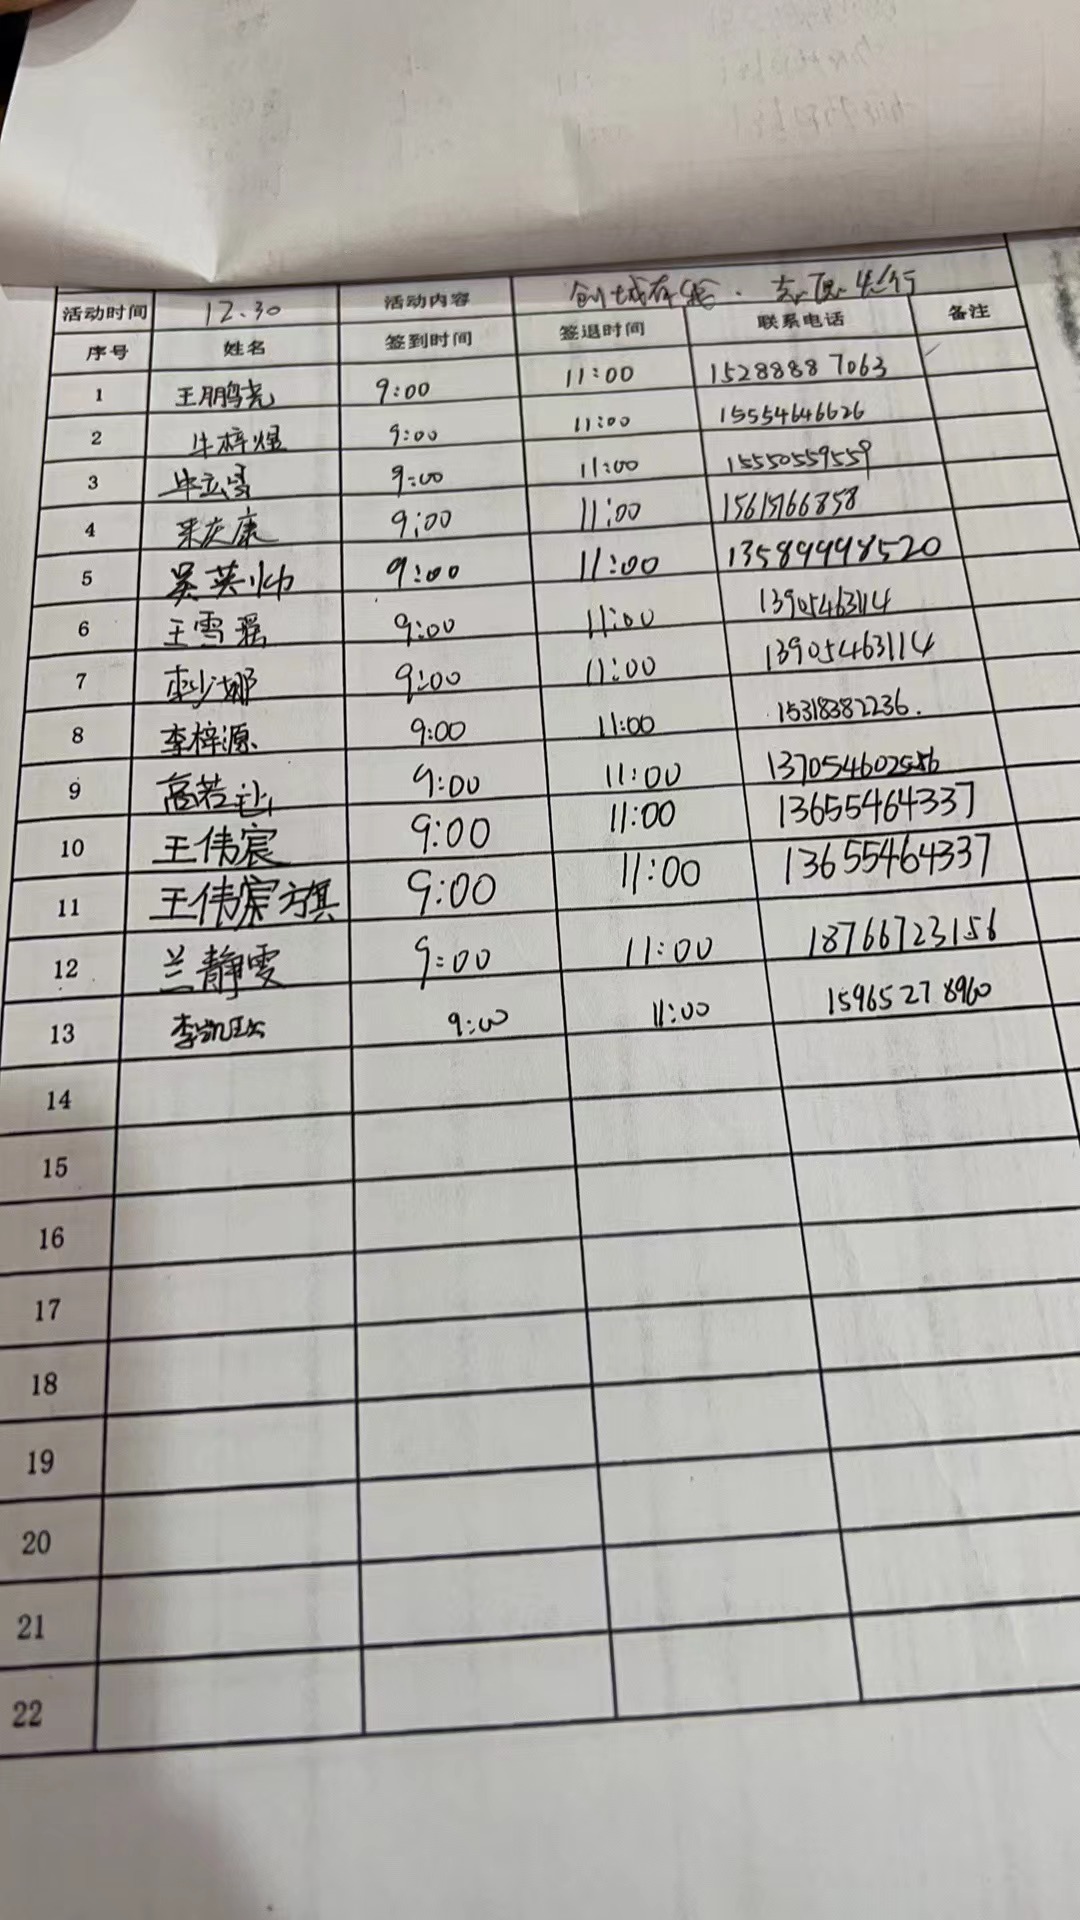 活动时间 12.30 活动内容 创城有我
序号 姓名 签到时间 签退时间 联系电话 备注
1 王鹏尧 9:00 11:00 15288887063
2 牛梓煜 9:00 11:00 15554646626
3 9:00 11:00 15550559559
4 9:00 11:00
5 吴英帅 9:00 11:00 13589998520
6 王雪瑶 9:00 11:00 13905463114
7 李少娜 9:00 11:00 13905463114
8 李梓源 9:00 11:00 15318382236.
9 高若 9:00 11:00
10 王伟宸 9:00 11:00 13655464337
11 王伟宸 旗 9:00 11:00 13655464337
12 兰静雯 9:00 11:00 18766723156
13 李凯 9:00 11:00 15965278960
14
15
16
17
18
19
20
21
22